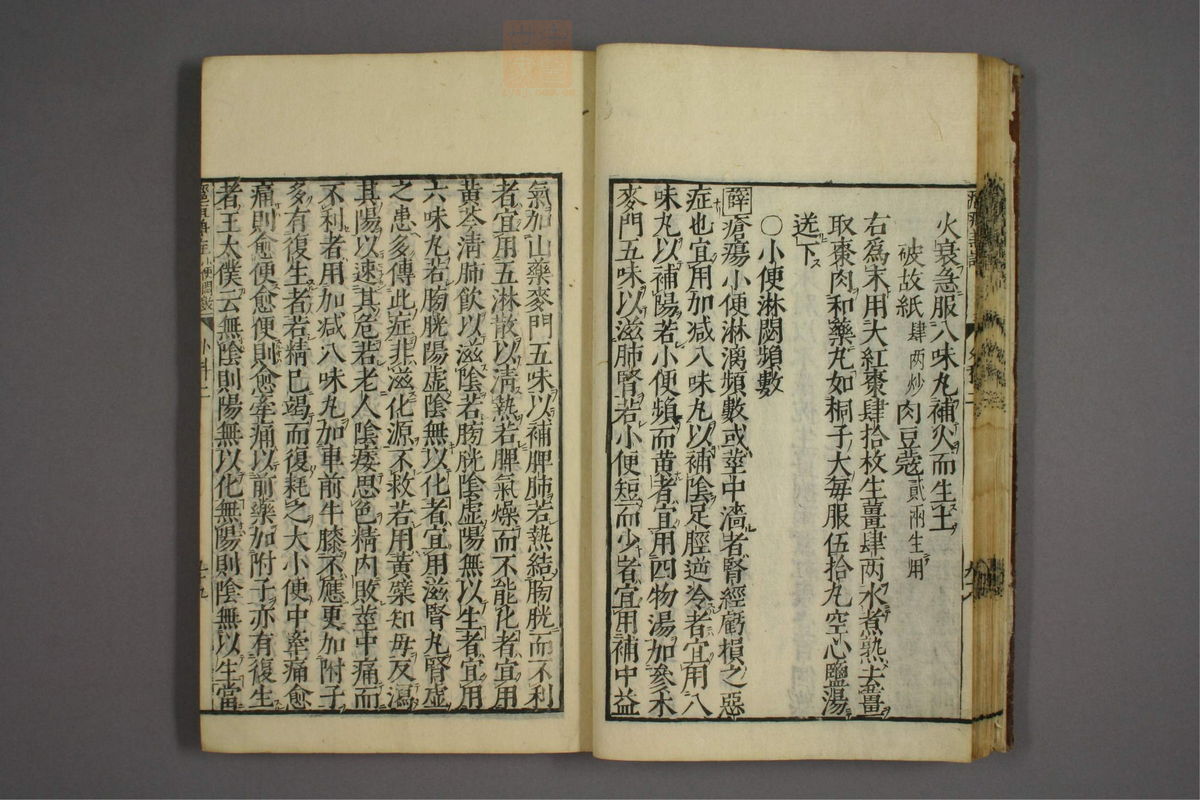 火衰急服八味丸補火而生土
破故紙肆两炒肉豆蔻貳兩生用
右爲末用大紅棗肆拾枚生薑肆两水煮熟去薑
取棗肉和藥丸如桐子大每服伍拾丸空心鹽湯
送下
○小便淋閟頻數
薛瘡瘍小便淋漓頻數或莖中濇者腎經虧損之惡
症也宜用加減八味丸以補陰足脛逆冷者宜用八
味丸以補陽若小便頻而黄者宜用四物湯加參朮
麥門五味以滋肺腎若小便短而少者宜用補中益
氣加山藥麥門五味以補脾肺若熱結膀胱而不利
者宜用五淋散以清熱若脾氣燥而不能化者宜用
黄芩清肺飲以滋陰若膀胱陰虚陽無以生者宜用
六味丸若膀胱陽虚陰無以化者宜用滋腎丸腎虚
之患多傳此症非滋化源不救若用黄蘗知母反瀉
其陽以速其危若老人陰痿思色精内敗莖中痛而
不利者用加减八味丸加車前牛膝不應更加附子
多有復生者若精已竭而復耗之大小便中牽痛愈
痛則愈便愈便則愈牽痛以前藥加附子亦有復生
者王太僕云無陰則陽無以化無陽則陰無以生當